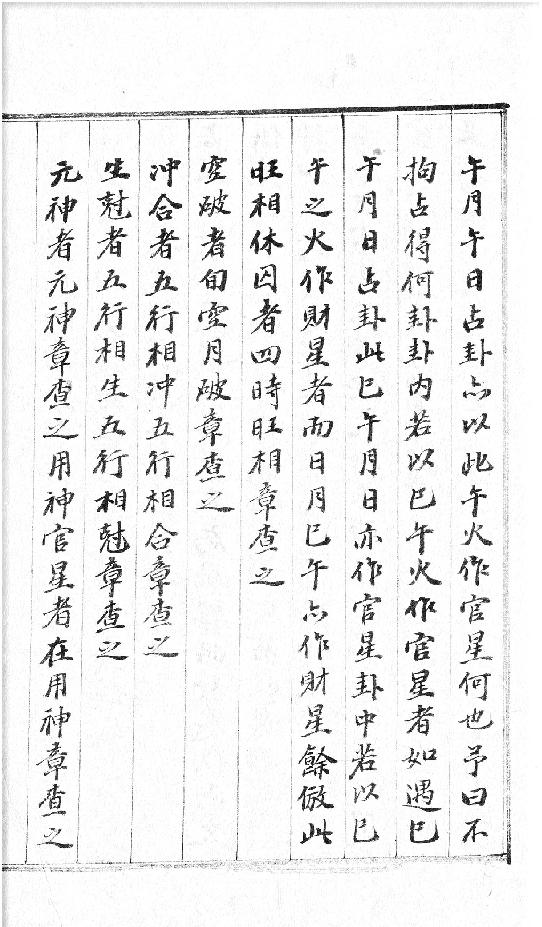 午月午日占卦亦以此午火作官星何也予曰不
拘占得何卦卦内若以巳午火作官星者如遇巳
午月日占卦此巳午月日亦作官星卦中若以巳
午之火作財星者而日月巳午亦作財星餘倣此
旺相休囚者四時旺相章查之
空破者旬空月破章查之
冲合者五行相冲五行相合章查之
生尅者五行相生五行相尅章查之
元神者元神章查之用神官星者在用神章查之